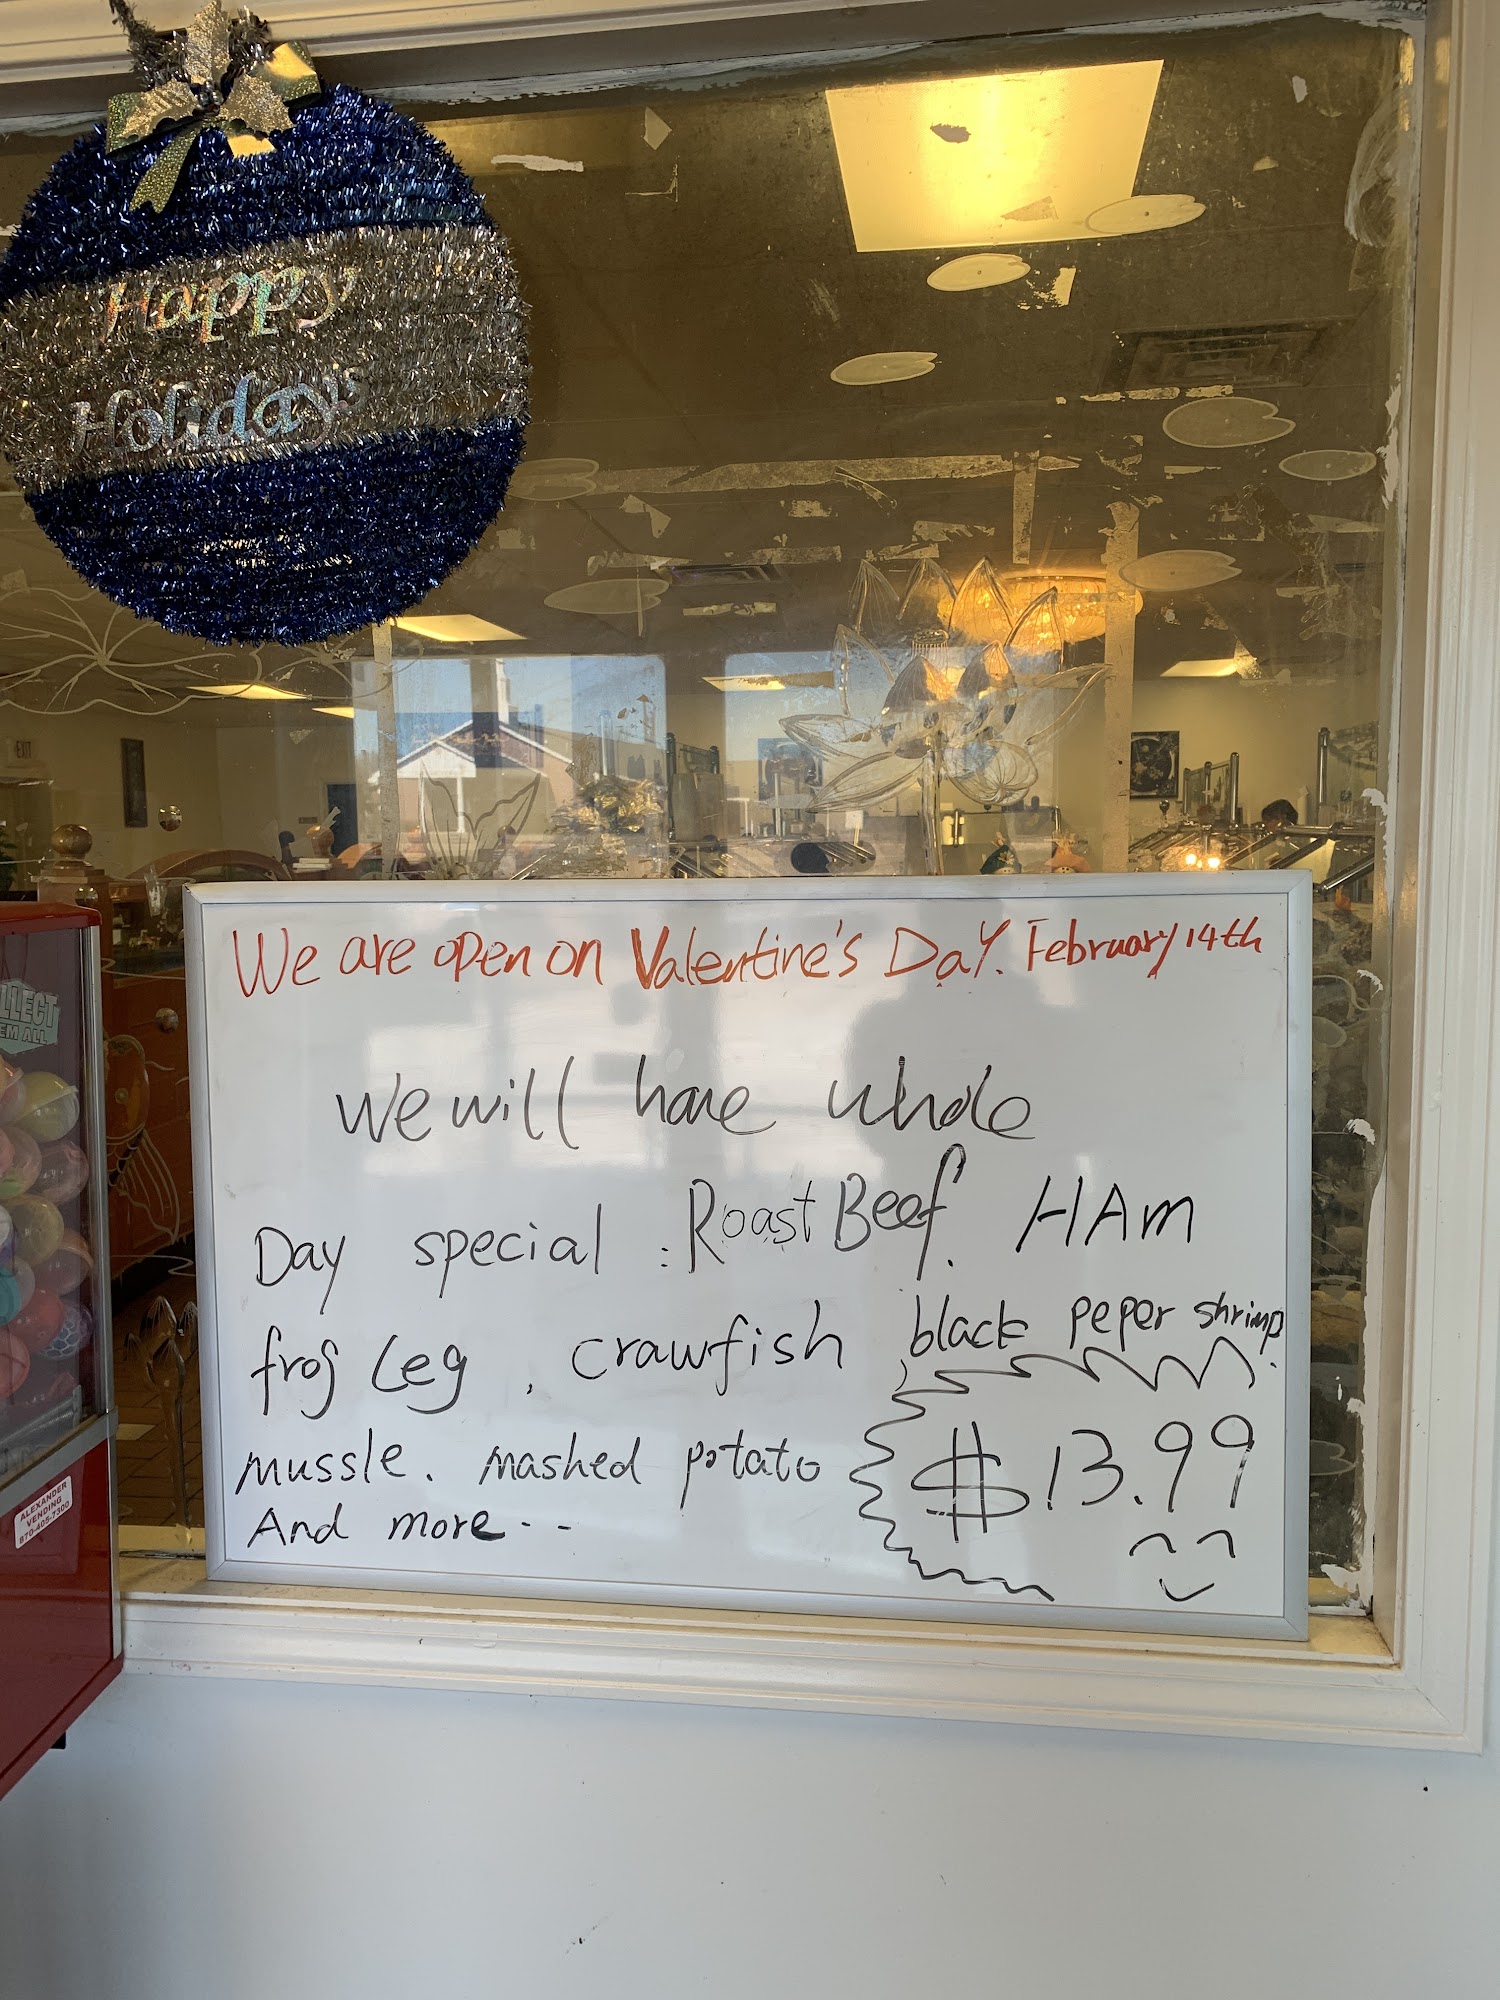 Happy
Holidays
EXIT
LLECT
EM ALL
We are open on Valentine's Day. February 14th
We will have whole
Day special : Roast Beef. HAm
frog Leg , crawfish , black peper shrimp.
mussle. mashed potato
$13.99
And more...
ALEXANDER
VENDING
870-405-7300